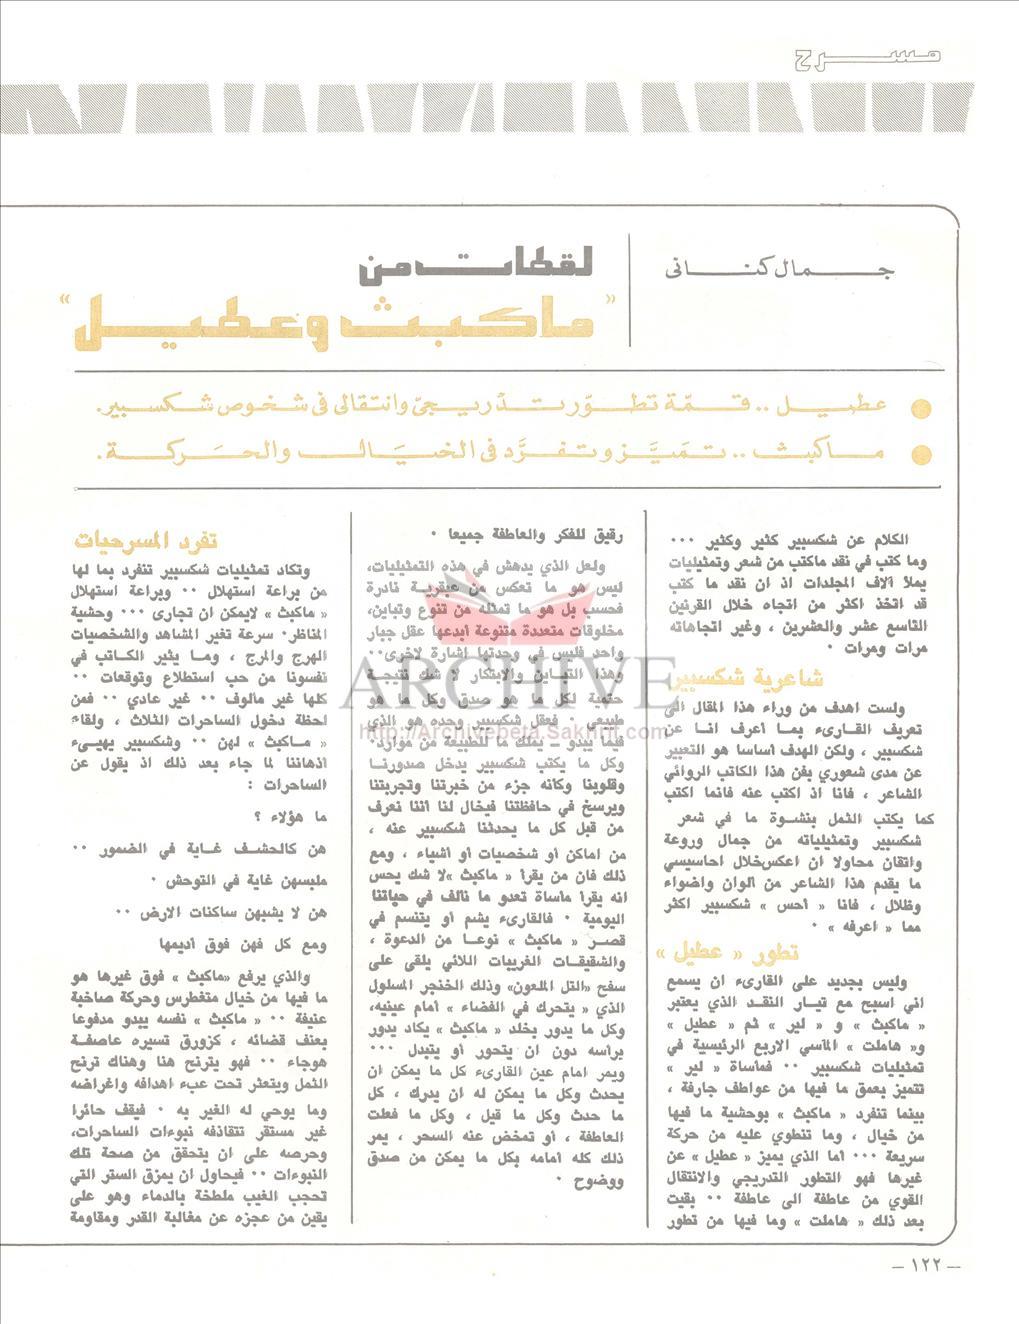 مسرح
جمال كنانى
لقطات من
"ماكبث وعطيل"
● عطيل .. قمة تطور تدريجي وانتقالى فى شخوص شكسبير.
● ماكبث .. تميز وتفرد فى الخيال والحركة.
الكلام عن شكسبير كثير وكثير ٠٠٠
وما كتب في نقد ماكتب من شعر وتمثيليات
يملأ آلاف المجلدات اذ ان نقد ما كتب
قد اتخذ اكثر من اتجاه خلال القرنين
التاسع عشر والعشرين ، وغير اتجاهاته
مرات ومرات ٠
شاعرية شكسبير
ولست اهدف من وراء هذا المقال الى
تعريف القارىء بما أعرف انا عن
شكسبير ، ولكن الهدف أساسا هو التعبير
عن مدى شعوري بفن هذا الكاتب الروائي
الشاعر ، فانا اذ اكتب عنه فانما اكتب
كما يكتب الثمل بنشوة ما في شعر
شكسبير وتمثيلياته من جمال وروعة
واتقان محاولا ان اعكس خلال احاسيسي
ما يقدم هذا الشاعر من ألوان واضواء
وظلال ، فانا « أحس » شكسبير اكثر
مما « اعرفه » ٠
تطور « عطيل »
وليس بجديد على القارىء ان يسمع
اني اسبح مع تيار النقد الذي يعتبر
« ماكبث » و « لير » ثم « عطيل »
و« هاملت » المآسي الاربع الرئيسية في
تمثيليات شكسبير ٠٠ فمأساة « لير »
تتميز بعمق ما فيها من عواطف جارفة ،
بينما تنفرد « ماكبث » بوحشية ما فيها
من خيال ، وما تنطوي عليه من حركة
سريعة ٠٠٠ أما الذي يميز « عطيل » عن
غيرها فهو التطور التدريجي والانتقال
القوي من عاطفة الى عاطفة ٠٠ بقيت
بعد ذلك « هاملت » وما فيها من تطور
رقيق للفكر والعاطفة جميعا ٠
ولعل الذي يدهش في هذه التمثيليات،
ليس هو ما تعكس من عبقرية نادرة
فحسب بل هو ما تمثله من تنوع وتباين،
مخلوقات متعددة متنوعة أبدعها عقل جبار
واحد فليس في وحدتها اشارة لاخرى٠٠
وهذا التباين والابتكار لا شك نتيجة
حتمية لكل ما هو صدق وكل ما هو
طبيعي ٠ فعقل شكسبير وحده هو الذي
فيما يبدو ـ يملك ما للطبيعة من موارد٠
وكل ما يكتب شكسبير يدخل صدورنا
وقلوبنا وكأنه جزء من خبرتنا وتجربتنا
ويرسخ في حافظتنا فيخال لنا أننا نعرف
من قبل كل ما يحدثنا شكسبير عنه ،
من اماكن أو شخصيات أو أشياء ، ومع
ذلك فان من يقرأ « ماكبث »لا شك يحس
انه يقرأ مأساة تعدو ما نألف في حياتنا
اليومية ٠ فالقارىء يشم أو يتنسم في
قصر « ماكبث » نوعا من الدعوة ،
والشقيقات الغريبات اللائي يلقى على
سفح «التل الملعون» وذلك الخنجر المسلول
الذي « يتحرك في الفضاء » أمام عينيه،
وكل ما يدور بخلد « ماكبث » يكاد يدور
برأسه دون ان يتحور أو يتبدل ٠٠٠
ويمر امام عين القارىء كل ما يمكن ان
يحدث وكل ما يمكن له ان يدرك ، كل
ما حدث وكل ما قيل ، وكل ما فعلت
العاطفة ، أو تمخض عنه السحر ، يمر
ذلك كله أمامه بكل ما يمكن من صدق
ووضوح ٠
تفرد المسرحيات
وتكاد تمثيليات شكسبير تنفرد بما لها
من براعة استهلال ٠٠ وبراعة استهلال
« ماكبث » لايمكن ان تجارى ٠٠٠ وحشية
المناظر٠ سرعة تغير المشاهد والشخصيات
الهرج والمرج ، وما يثير الكاتب في
نفسونا من حب استطلاع وتوقعات ٠٠
كلها غير مألوف ٠٠ غير عادي ٠٠ فمن
لحظة دخول الساحرات الثلاث ، ولقاء
« ماكبث » لهن ٠٠ وشكسبير يهيىء
أذهاننا لما جاء بعد ذلك اذ يقول عن
الساحرات :
ما هؤلاء ؟
هن كالحشف غاية في الضمور ٠٠
ملبسهن غاية في التوحش ٠
هن لا يشبهن ساكنات الارض ٠٠
ومع كل فهن فوق أديمها
والذي يرفع «ماكبث » فوق غيرها هو
ما فيها من خيال متغطرس وحركة صاخبة
عنيفة ٠٠ « ماكبث » نفسه يبدو مدفوعا
بعنف قضائه ، كزورق تسيره عاصفة
هوجاء ٠٠ فهو يترنح هنا وهناك ترنح
الثمل ويتعثر تحت عبء اهدافه واغراضه
وما يوحي له الغير به ٠ فيقف حائرا
غير مستقر تتقاذفه نبوءات الساحرات،
وحرصه على ان يتحقق من صحة تلك
النبوءات ٠٠ فيحاول ان يمزق الستر التي
تحجب الغيب ملطخة بالدماء وهو على
يقين من عجزه عن مغالبة القدر ومقاومة
ARCHIVE
http://Archivebeta.Sakhrit.com
– ١٢٢ –